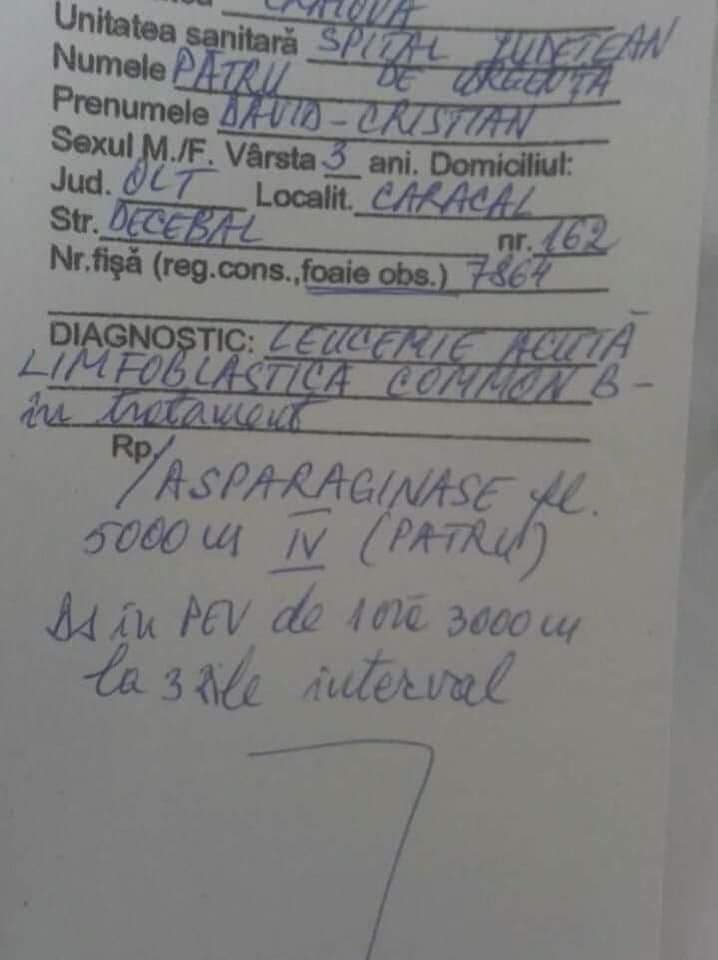 CRAIOVA
Unitatea sanitară SPITAL JUDEȚEAN
Numele PĂTRU DE URGENȚĂ
Prenumele DAVID-CRISTIAN
Sexul M./F. Vârsta 3 ani. Domiciliul:
Jud. OLT Localit. CARACAL
Str. DECEBAL nr. 162
Nr.fişă (reg.cons.,foaie obs.) 7864
DIAGNOSTIC: LEUCEMIE ACUTĂ
LIMFOBLASTICĂ COMMON B -
în tratament
Rp/
ASPARAGINASE fl.
5000 ui IV (PATRU)
DS în PEV de 1 oră 3000 ui
la 3 zile interval